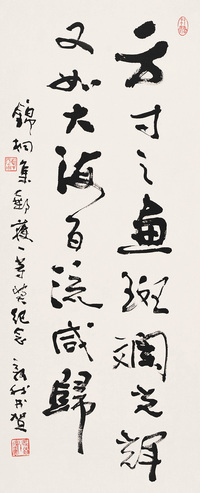 方寸之画斑斓光辉
又如大海百流咸归
锦桐集邮获一等奖纪念